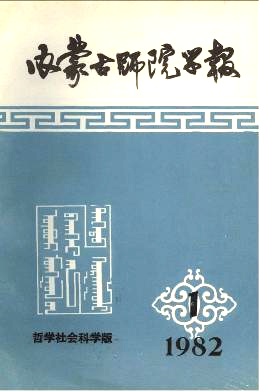 内蒙古师院学报
哲学社会科学版
1
1982